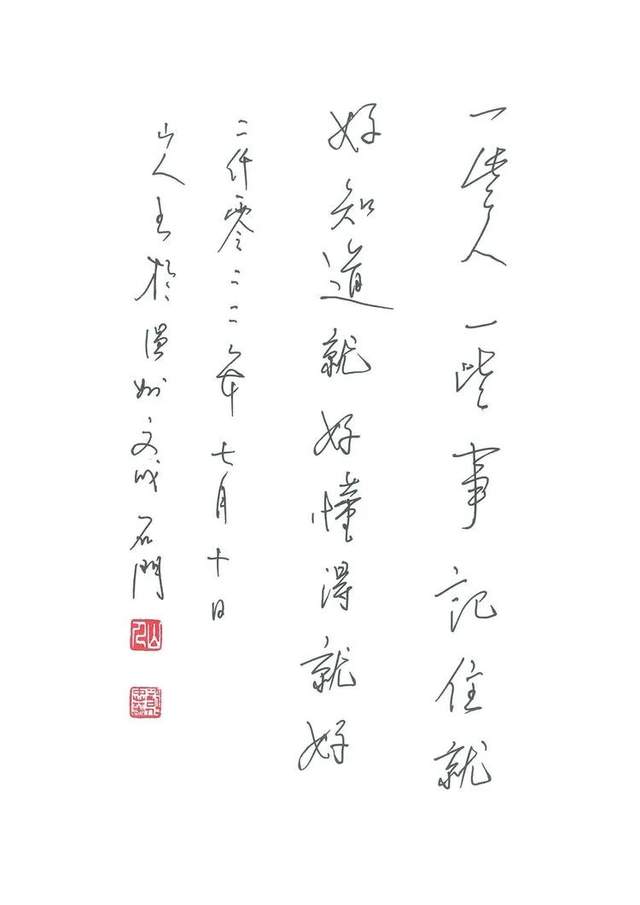 一些人一些事記住就
好知道就好懂得就好
二仟零二二年七月十日
山人書於温州文成石門
山人